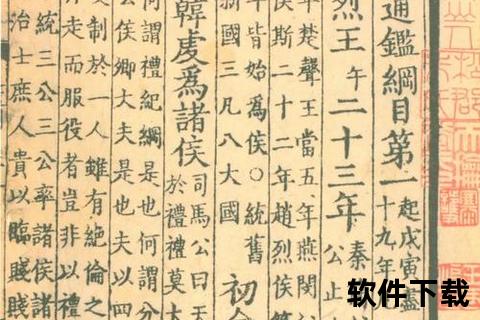 通鑑綱目第一
起戊寅
十九年
烈王午二十三年
秦
公止
年楚聲王當五年燕閔
侯斯二十二年趙烈侯
年皆始為侯○統舊
新國三凡八大國
初
韓虔為諸侯
司馬公曰天
於禮禮莫大
何謂禮紀綱是也何謂分
公侯卿大夫是也夫以四
受制於一人雖有絕倫之
奔走而服役者豈非以禮
統三公三公率諸侯諸侯
治士庶人貴以臨賤賤
软件下载